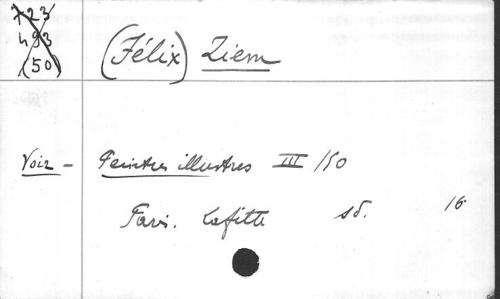 723
493
(50)
(Félix) Ziem
Voir - Peintres illustres III /50
Paris. Lafitte sd. 16